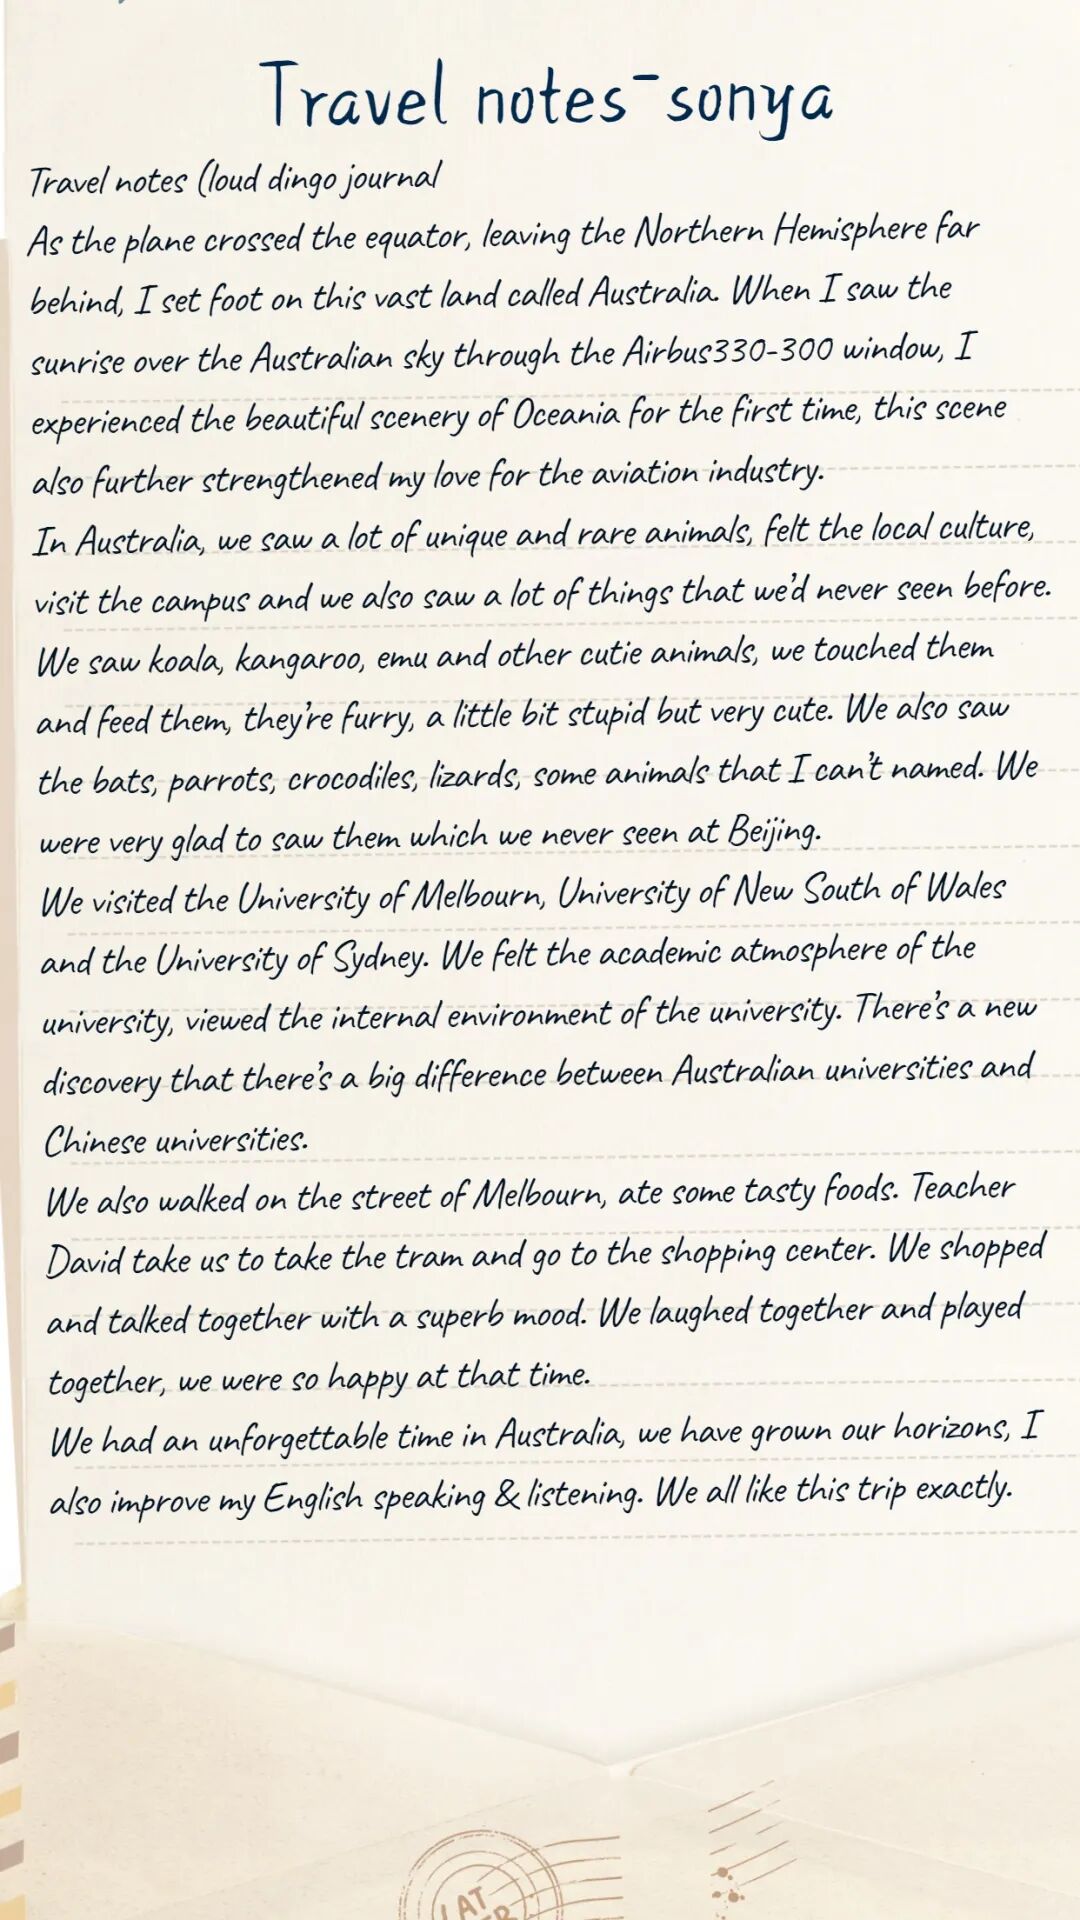 Travel notes-sonya
Travel notes (loud dingo journal
As the plane crossed the equator, leaving the Northern Hemisphere far
behind, I set foot on this vast land called Australia. When I saw the
sunrise over the Australian sky through the Airbus330-300 window, I
experienced the beautiful scenery of Oceania for the first time, this scene
also further strengthened my love for the aviation industry.
In Australia, we saw a lot of unique and rare animals, felt the local culture,
visit the campus and we also saw a lot of things that we'd never seen before.
We saw koala, kangaroo, emu and other cutie animals, we touched them
and feed them, they're furry, a little bit stupid but very cute. We also saw
the bats, parrots, crocodiles, lizards, some animals that I can't named. We
were very glad to saw them which we never seen at Beijing.
We visited the University of Melbourn, University of New South of Wales
and the University of Sydney. We felt the academic atmosphere of the
university, viewed the internal environment of the university. There's a new
discovery that there's a big difference between Australian universities and
Chinese universities.
We also walked on the street of Melbourn, ate some tasty foods. Teacher
David take us to take the tram and go to the shopping center. We shopped
and talked together with a superb mood. We laughed together and played
together, we were so happy at that time.
We had an unforgettable time in Australia, we have grown our horizons, I
also improve my English speaking & listening. We all like this trip exactly.